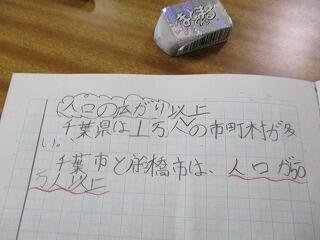 まとまるくん
人口の広がり以上
千葉県は1万人の市町村が多
い。
千葉市と船橋市は、人口が50
万人以上